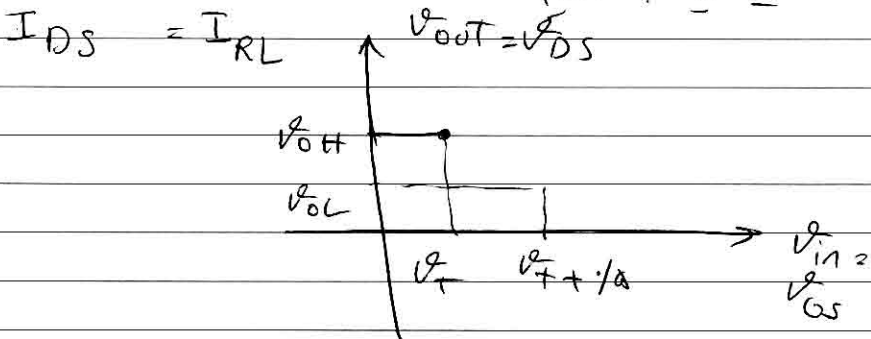 I_DS = I_RL
V_OUT = V_DS
V_OH
V_OL
V_T V_T +
V_in =
V_GS